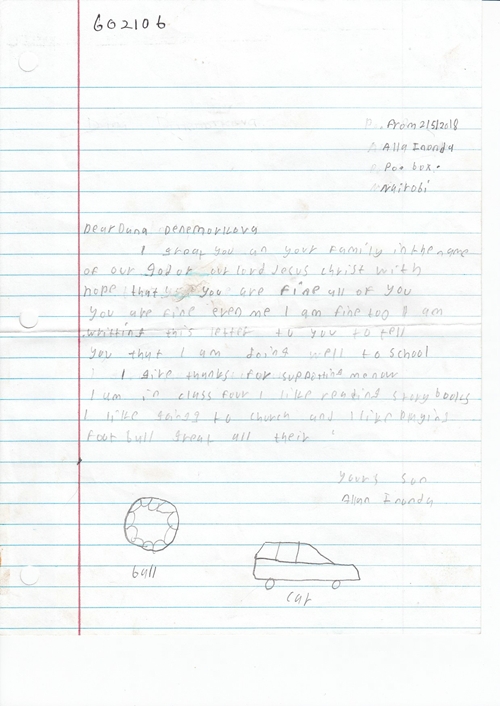 602106
From 2/5/2018
Allan Inonda
P.o. box.
Nairobi
Dear Dana Denemorkova
I great you an your family in the name
of our god or our lord Jesus christ with
hope that you are fine all of you
You are fine even me I am fine too I am
writting this letter to you to tell
you that I am doing well to school
I give thanks for supporting me now
I am in class four I like reading story books
I like going to church and I like playing
foot ball great all their
yours son
Allan Inonda
ball
car